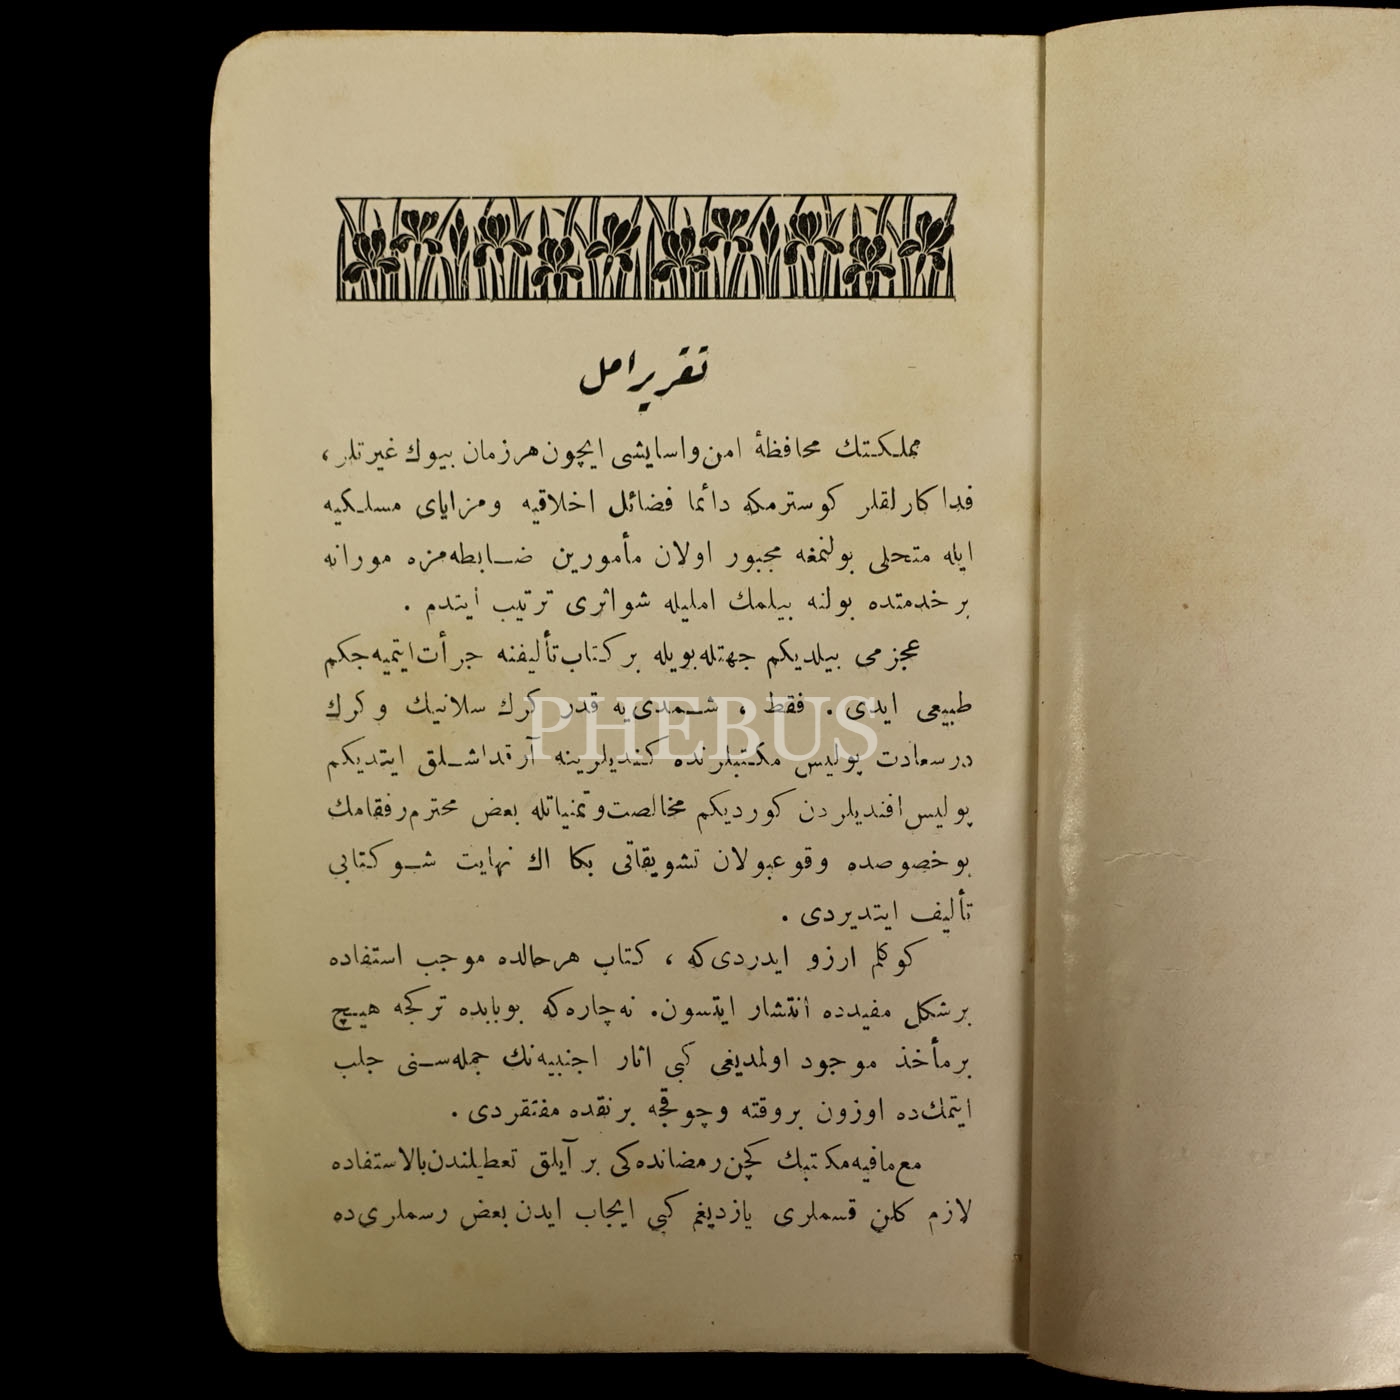 تقریر امل
مملكتك محافظهٔ امن واسایشی ایچون هر زمان بیوك غیرتلر ،
فداكارلقلر كوسترمكه دائما فضائل اخلاقیه ومزایای مسلكیه
ایله متحلی بولنمغه مجبور اولان مأمورین ضابطه‌مزه مورانه
بر خدمتده بولنه بیلمك املیله شو اثری ترتیب ایتدم .
عجزمی بیلدیكم جهتله بویله بر كتاب تألیفنه جرأت ایتمیه‌جكم
طبیعی ایدی . فقط ، شمدی‌یه قدر كرك سلانیك وكرك
درسعادت پولیس مكتبلرنده كندیلرینه آرقداشلق ایتدیكم
پولیس افندیلردن كوردیكم مخالصت وتمنیاتله بعض محترم رفقامك
بو خصوصده وقوعبولان تشویقاتی بكا اك نهایت شو كتابی
تألیف ایتدیردی .
كوكلم ارزو ایدردی‌كه ، كتاب هر حالده موجب استفاده
بر شكل مفیدده انتشار ایتسون. نه چاره‌كه بوبابده تركجه هیچ
بر مأخذ موجود اولمدیغی كبی اثار اجنبیه‌نك جمله‌سنی جلب
ایتمك‌ده اوزون بر وقته وچوقجه بر نقده مفتقردی .
مع‌مافیه مكتبك كچن رمضانده‌كی بر آیلق تعطیلندن بالاستفاده
لازم كلن قسملری یازدیغم كبی ایجاب ایدن بعض رسملری‌ده
PHEBUS